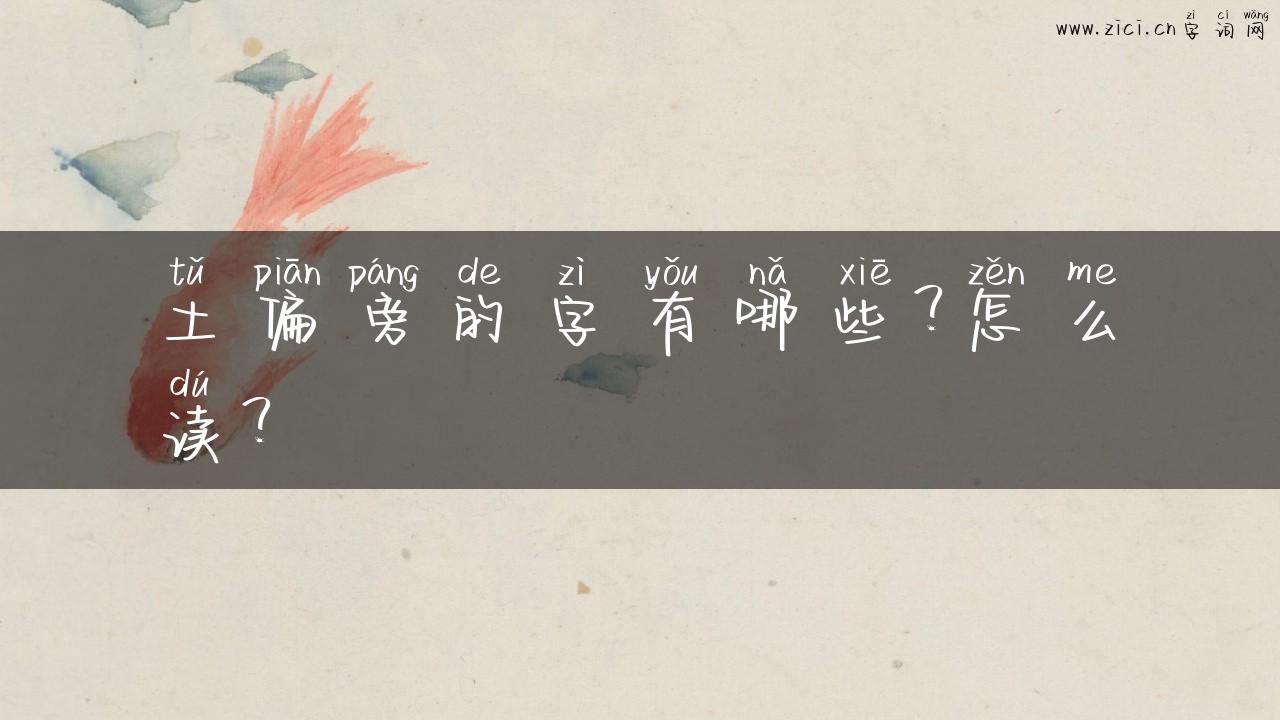 zì cí wǎng
www.zici.cn字词网
tǔ piān páng de zì yǒu nǎ xiē zěn me
土偏旁的字有哪些？怎么
dú
读？